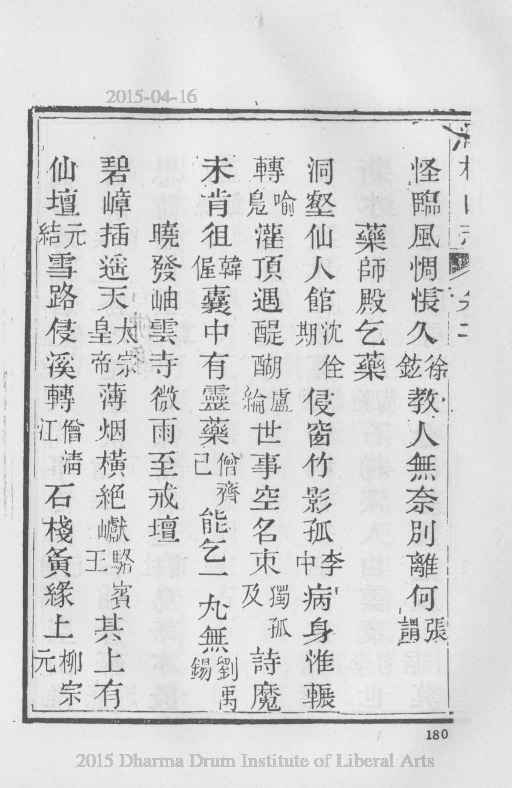 2015-04-16
怪臨風惆悵久徐鉉教人無奈別離何張謂
藥師殿乞藥
洞壑仙人館沈佺期侵窗竹影孤李中病身惟輾
轉喻鳧灌頂遇醍醐盧綸世事空名束獨孤及詩魔
未肯徂韓偓囊中有靈藥僧齊己能乞一丸無劉禹錫
曉發岫雲寺微雨至戒壇
碧嶂插遥天太宗皇帝薄烟橫絕巘駱賓王其上有
仙壇元結雪路侵溪轉僧清江石棧夤緣上柳宗元
180
2015 Dharma Drum Institute of Liberal Arts